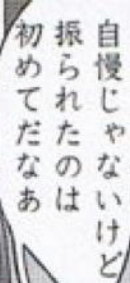 自慢じゃないけど
振られたのは
初めてだなあ